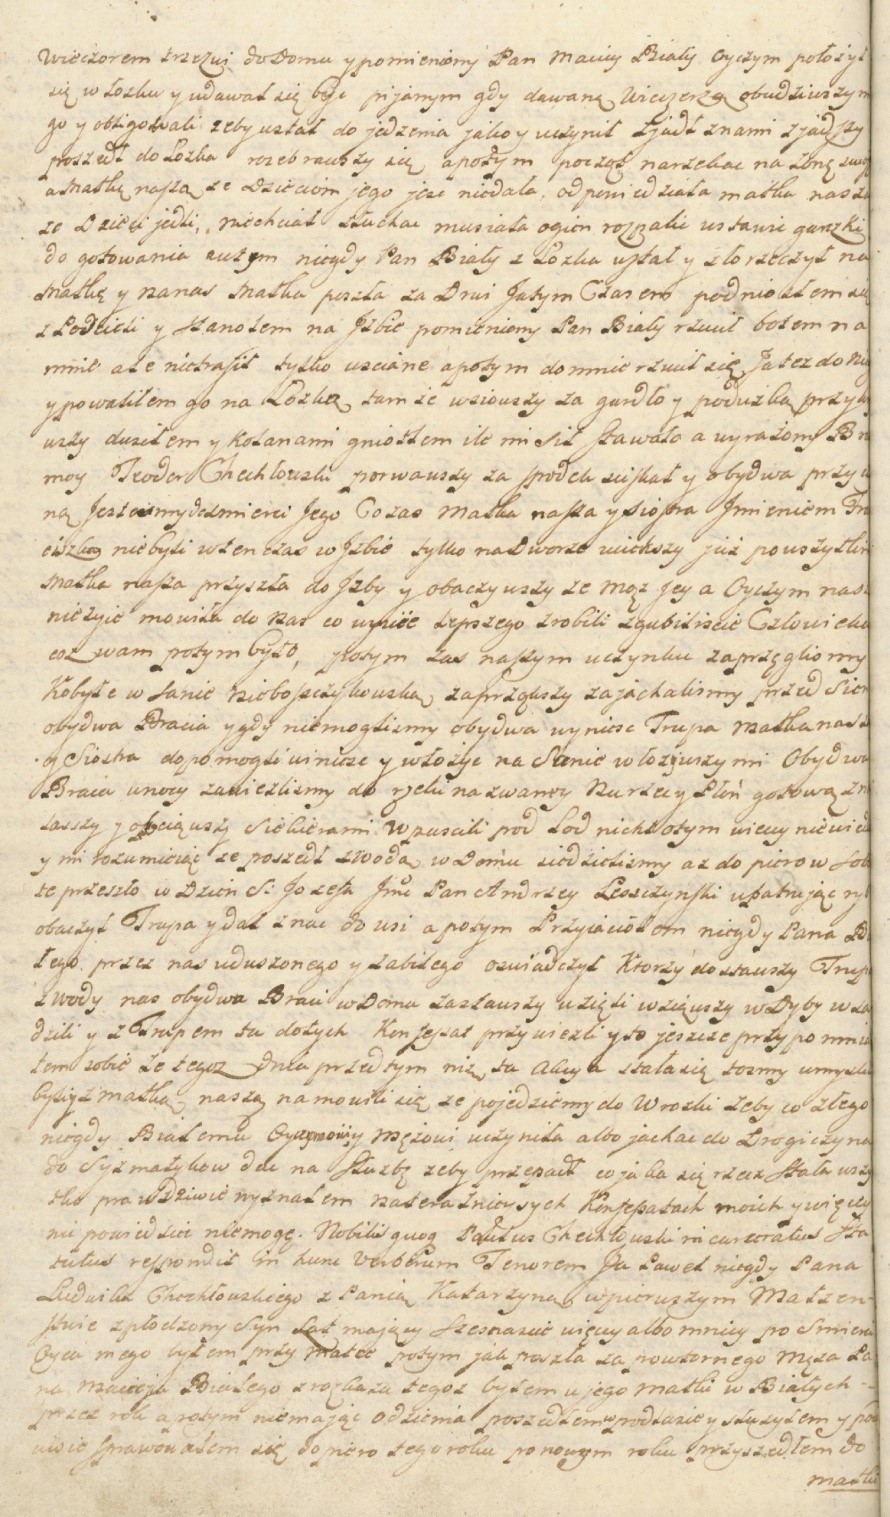 wieczorem trzezwi do Domu y pomieniony Pan Maciey Biały Oyczym położył
się w łozku y udawał się bydz pijanym gdy dawano wieczerzą obudziwszy
go y obligowali zeby wstał do jedzenia jako y uczynił y jadł z nami zjadszy
poszedł do Łozka rozebrawszy się a potym począł narzekac na Zonę swoię
a Matkę naszą ze Dzieciom jego jesc niedała, odpowiedziała matka nasza
ze Dzieci jedli, niechciał słuchac musiała ogien rozpalic wstawic garczki
do gotowania zatym niegdy Pan Biały z Łozka wstał y złorzeczył na
Matkę y na nas Matka poszła za Drwi Ja tym Czasem podniosłem się
z Poscieli y stanołem na Jzbie pomieniony Pan Biały rzucił botem na
mnie ale nietrafił tylko w sciane a potym do mnie rzucił się Ja tez do niego
y powaliłem go na Łozko tamze wziowszy za gardło y poduszką przykry
wszy dusiłem y kolanami gniotłem ile mi sił stawało a wyrazony Brat
moy Teodor Chechłowski porwawszy za srodek sciskał y obydwa przyczy
ną Jestesmy do smierci Jego Co zas Matka nasza y siostra Jmieniem Fran
ciszka niebyli w ten czas w Jzbie tylko na Dworze wiekszy juz po wszytkim
Matka nasza przyszła do Jzby y obaczywszy ze mąz jey a Oyczym nasz
niezyie mowiła do nas co wyscie lepszego zrobili zgubiliscie Człowieka
coz wam potym było, po tym zas naszym uczynku zaprzęgliomy
Kobyłe w sanie nieboszczykowską zaprzągszy zajachalismy przed Sien
obydwa Bracia y gdy niemoglismy obydwa wyniesc Trupa Matka nasza
y Siostra dopomogli winiesc y włozyc na Sanie włozywszy mi Obydwa
Bracia w nocy zawiezlismy do rzeki nazwaney Nurzec y Płoń gotową zna
lasszy y obciąwszy Siekierami wpuscili pod Lod nicht o tym wiecy niewied
y mi rozumieiąc ze poszedł z wodą w Domu siedzielismy az dopiero w sobo
te przeszłą w Dzien S: Jozefa Jmć Pan Andrzey Leszczynski upatruiąc ryb
obaczył Trupa y dał znac do wsi a potym Przyiaciołom niegdy Pana Bia
łego przez nas uduszonego y zabitego oswiadczył Ktorzy dostawszy Trupa
z wody nas obydwa Braci w Domu zastawszy wzięli wziąwszy w Dyby wsa
dzili y z Trupem tu do tych Konfessat przywiezli y to jeszcze przypomnia
łem sobie ze tegoz Dnia przed tym niz ta Akcya stała się tosmy umyslili
byli y z matką naszą namowili się ze pojedziemy do Wrozki zeby co złego
niegdy Białemu Oyczymowi y Męzowi uczyniła albo jachac do Drogiczyna
do Syzmatykow dac na Słuzbę zeby przepadł co jaka się rzecz stała wszy
tko prawdziwie wyznałem na teraznieyszych Konfessatach moich y więcy
nic powiedziec niemogę. Nobilis quoq Paulus Chechłowski incarceratus Sta
tutus respondit in hunc verborum Tenorem Ja Paweł niegdy Pana
Ludwika Chechłowskiego z Panią Katarzyną w pierwszym Małzen-
stwie zpłodzony Syn Lat mający Szesnascie więcy albo mniey po Smierci
Oyca mego byłem przy matce potym jak poszła za powtornego Męza Pa
na Macieja Białego z rozkazu tegoz byłem u jego matki w Białych -
przez rok a potym niemając Odzienia poszedłem w Podlasie y słuzyłem y poc
ciwie sprawowałem się dopiero tego roku po nowym roku przyszedłem do
matki